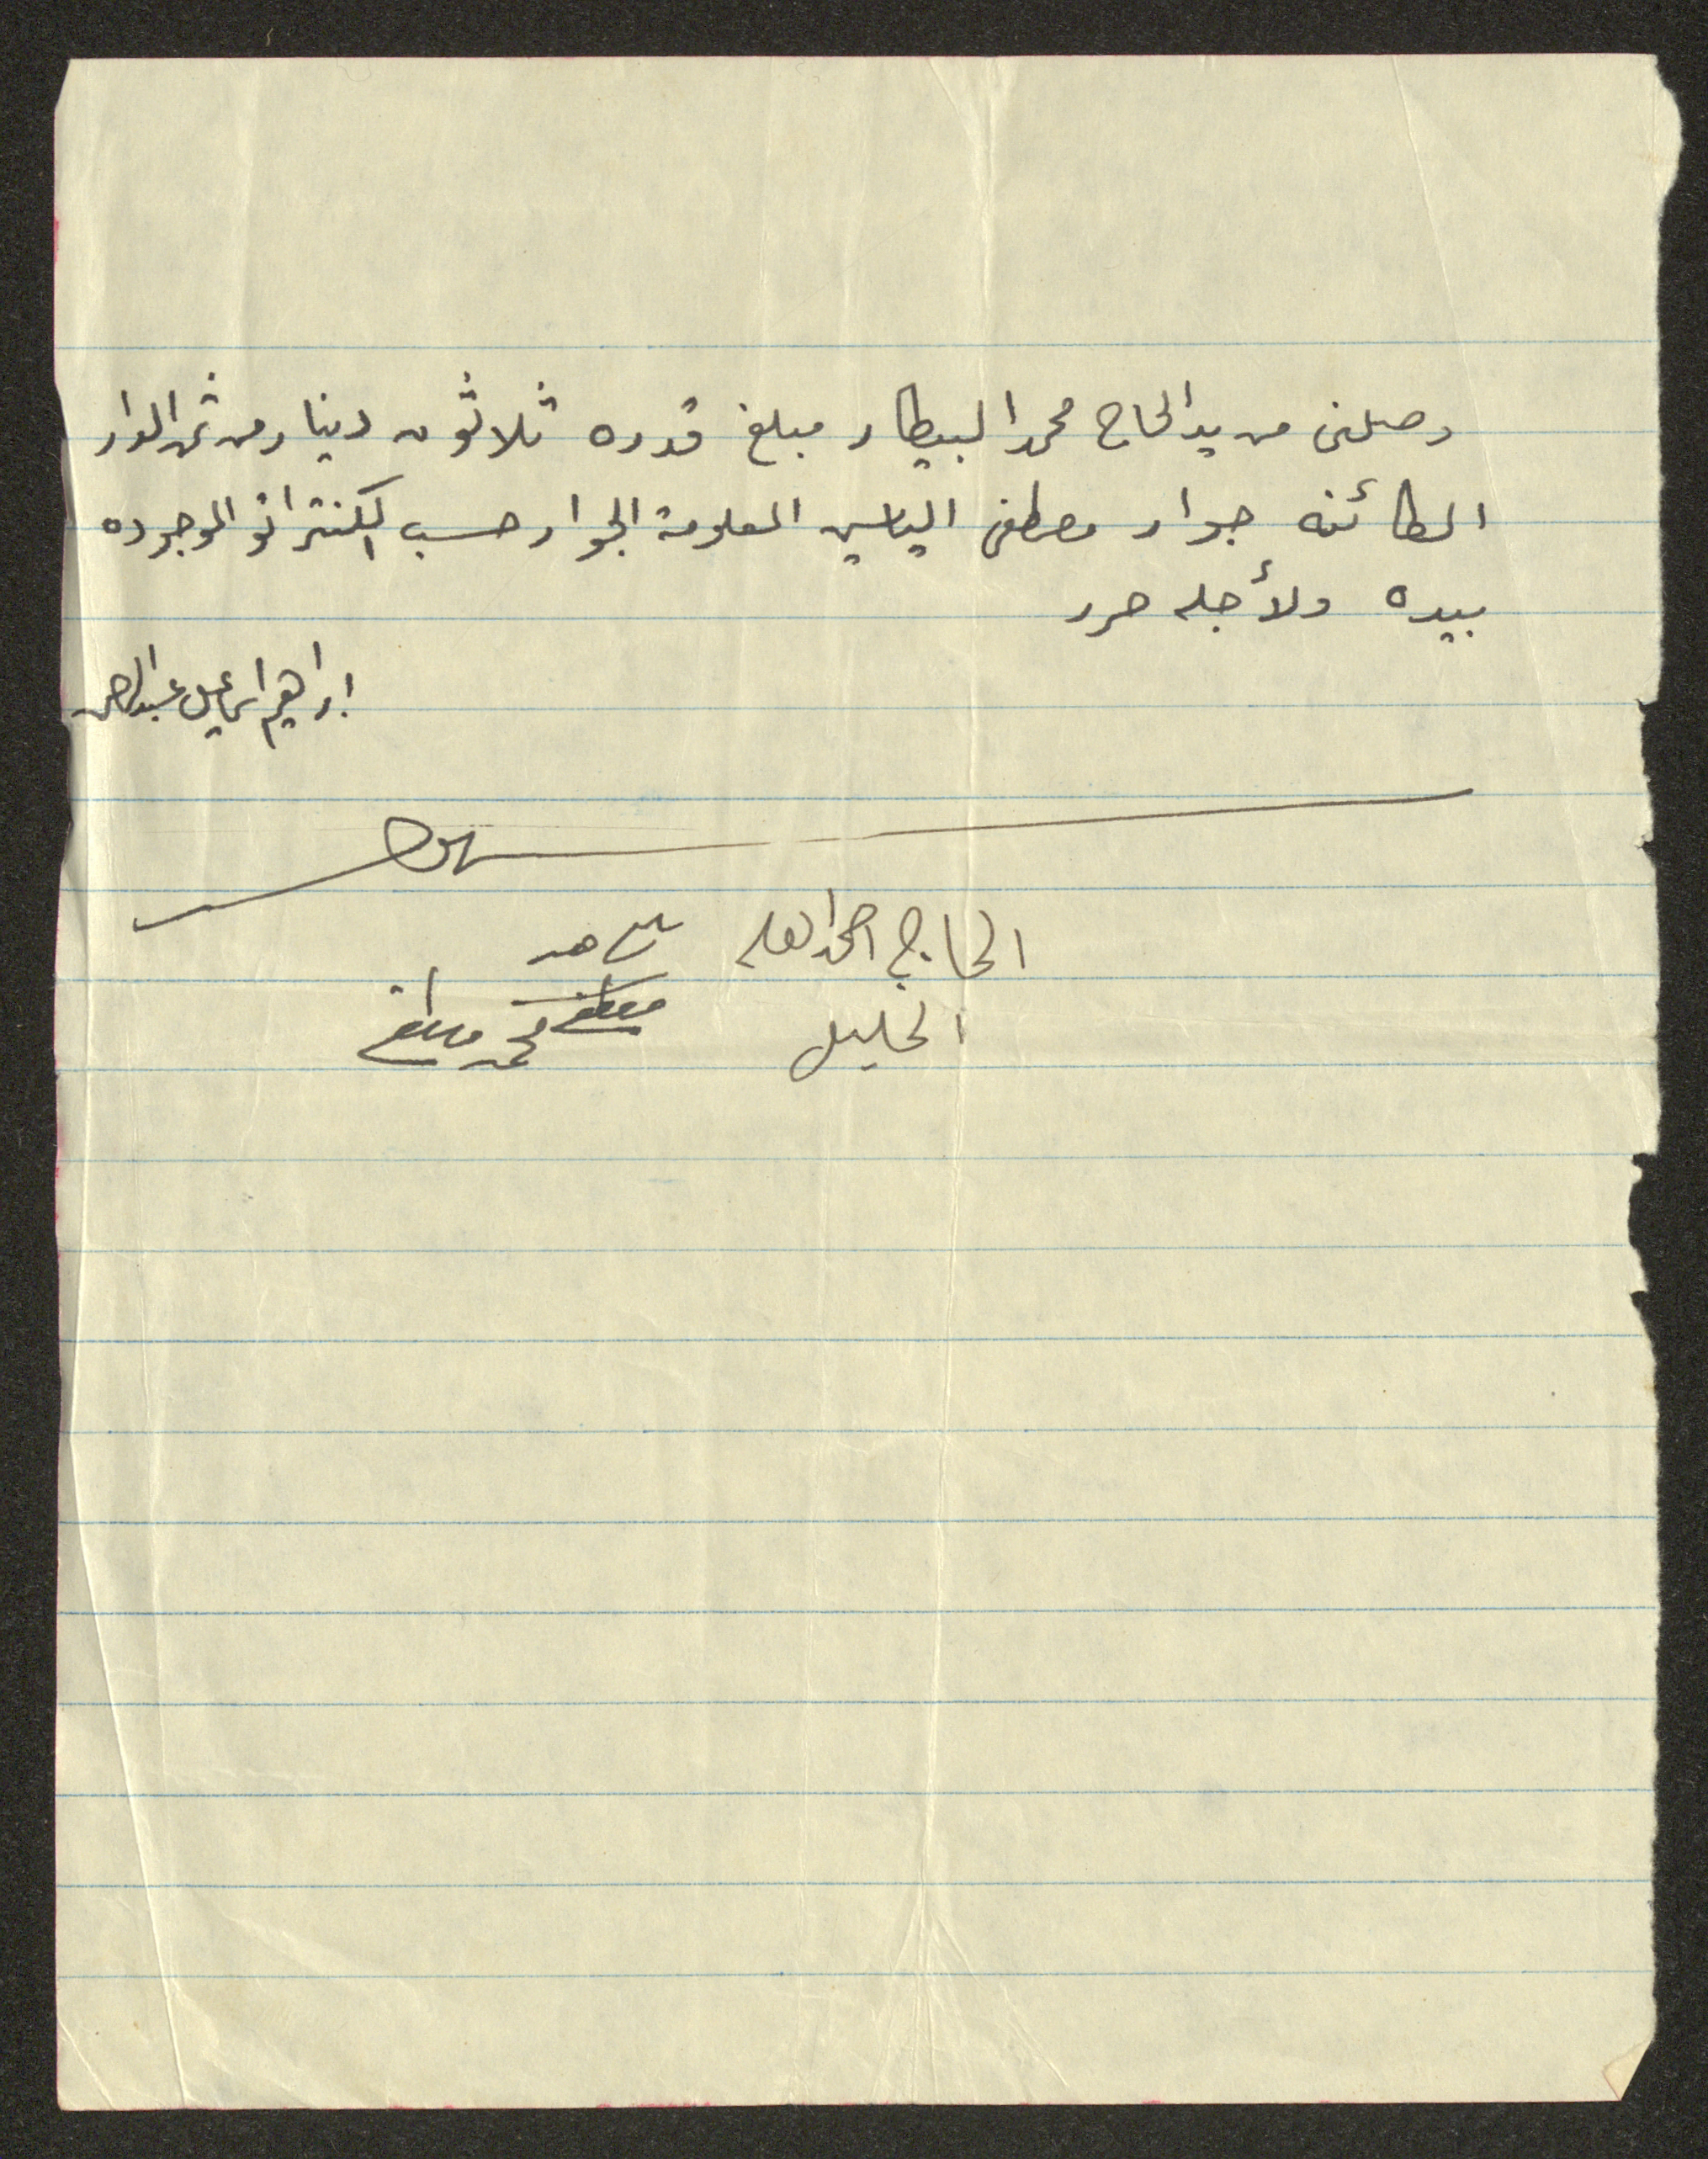 وصلنى من يد الحاج محمد البيطار مبلغ قدره ثلاثون دينار من ثمن الدار
الكائنه جوار مصطفى الياسين المعلومة الجوار حسب الكنتراتو الموجوده
بيده ولأجله حرر
ابراهيم اسماعيل عبدالرحمن
شهود
الحاج احمد العلي شاهد
الخليل محمد مصطفى